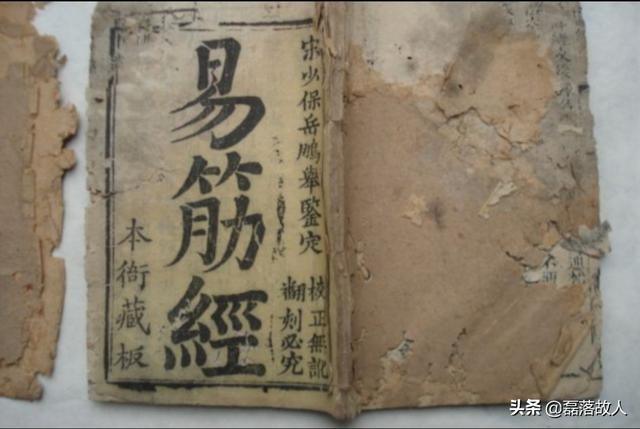 宋少保岳鵬舉鑒定
校正無訛
翻刻必究
易筋經
本衙藏板
头条 @磊落故人